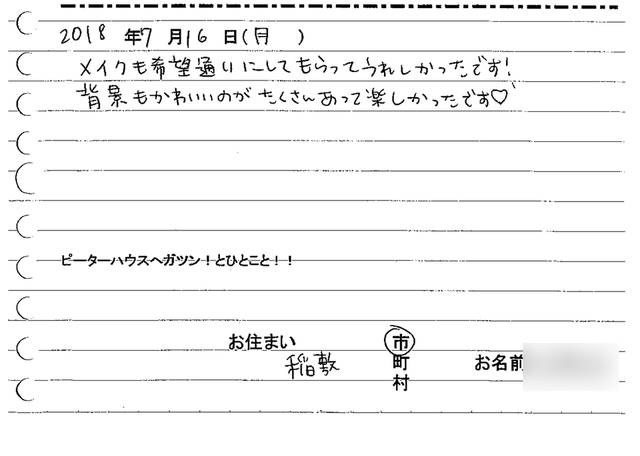 2018 年 7 月 16 日(月 )
メイクも希望通りにしてもらってうれしかったです!
背景もかわいいのがたくさんあって楽しかったです♡
ピーターハウスへガツン!とひとこと!!
お住まい 稲敷 市 町 村 お名前